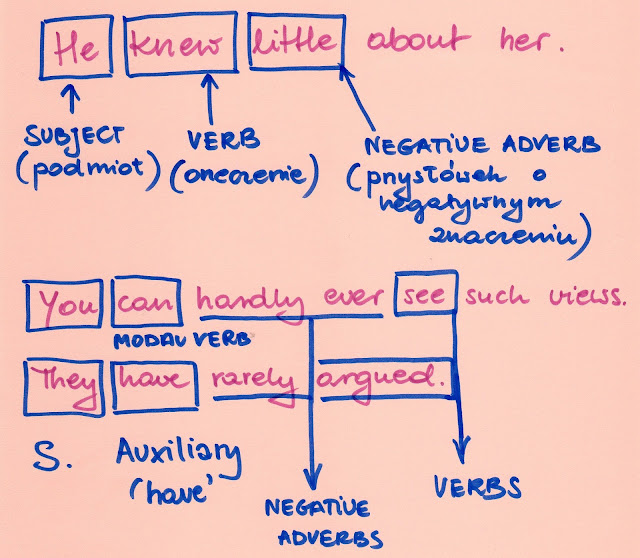 He knew little about her.
SUBJECT VERB NEGATIVE ADVERB
(podmiot) (orzeczenie) (przysłówek o
negatywnym
znaczeniu)
You can hardly ever see such views.
MODAL VERB
They have rarely argued.
S. Auxiliary
'have'
NEGATIVE VERBS
ADVERBS